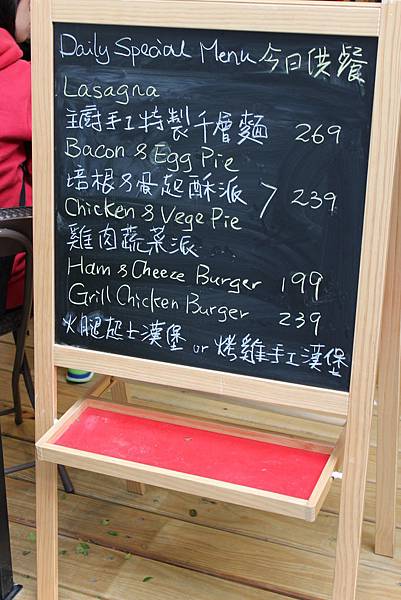 Daily Special Menu 今日供餐
Lasagna
主廚手工特製千層麵 269
Bacon & Egg Pie
培根&蛋起酥派 > 239
Chicken & Vege Pie
雞肉蔬菜派
Ham & Cheeze Burger 199
Grill Chicken Burger 239
火腿起士漢堡 or 烤雞手工漢堡